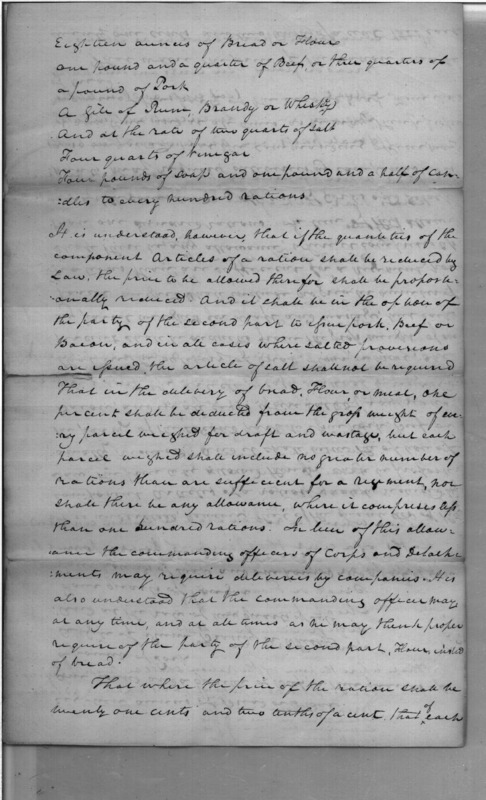 Eighteen ounces of Bread or Flour
one pound and a quarter of Beef or three quarters of
a pound of Pork
A Gill of Rum Brandy or Whisky
And at the rate of two quarts of Salt
Four quarts of Vinegar
Four pounds of Soap and one pound and a half of can-
:dles to every hundred rations
It is understood, however, that if the quantities of the
component Articles of a ration shall be reduced by
Law, the price to be allowed therefor shall be proporti-
:onally reduced. And it shall be in the option of
the party of the second part to issue pork, Beef or
Bacon, and in all cases where salted provisions
are issued the article of salt shall not be required
That in the delivery of bread, Flour or meat, one
per cent shall be deducted from the gross weight of eve-
:ry parcel weighed for draft and wastage, but each
parcel weighed shall include no greater number of
rations than are sufficient for a regiment, nor
shall there be any allowance, where it comprises less
than one hundred rations. In lieu of this allow-
ance the commanding officers of Corps and Detach-
:ments may require deliveries by companies. It is
also understood that the commanding officer may
at any time, and at all times as he may think proper
require of the party of the second part, Flour, instead
of bread.
That where the price of the ration shall be
twenty one cents and two tenths of a cent, that of each